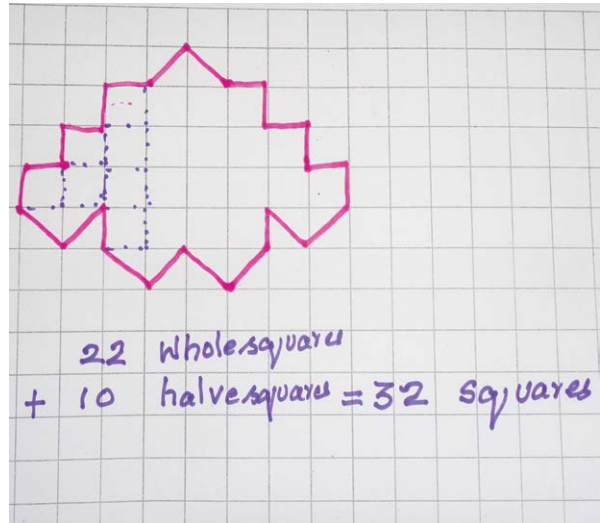 22 whole squares
+ 10 halve squares = 32 squares